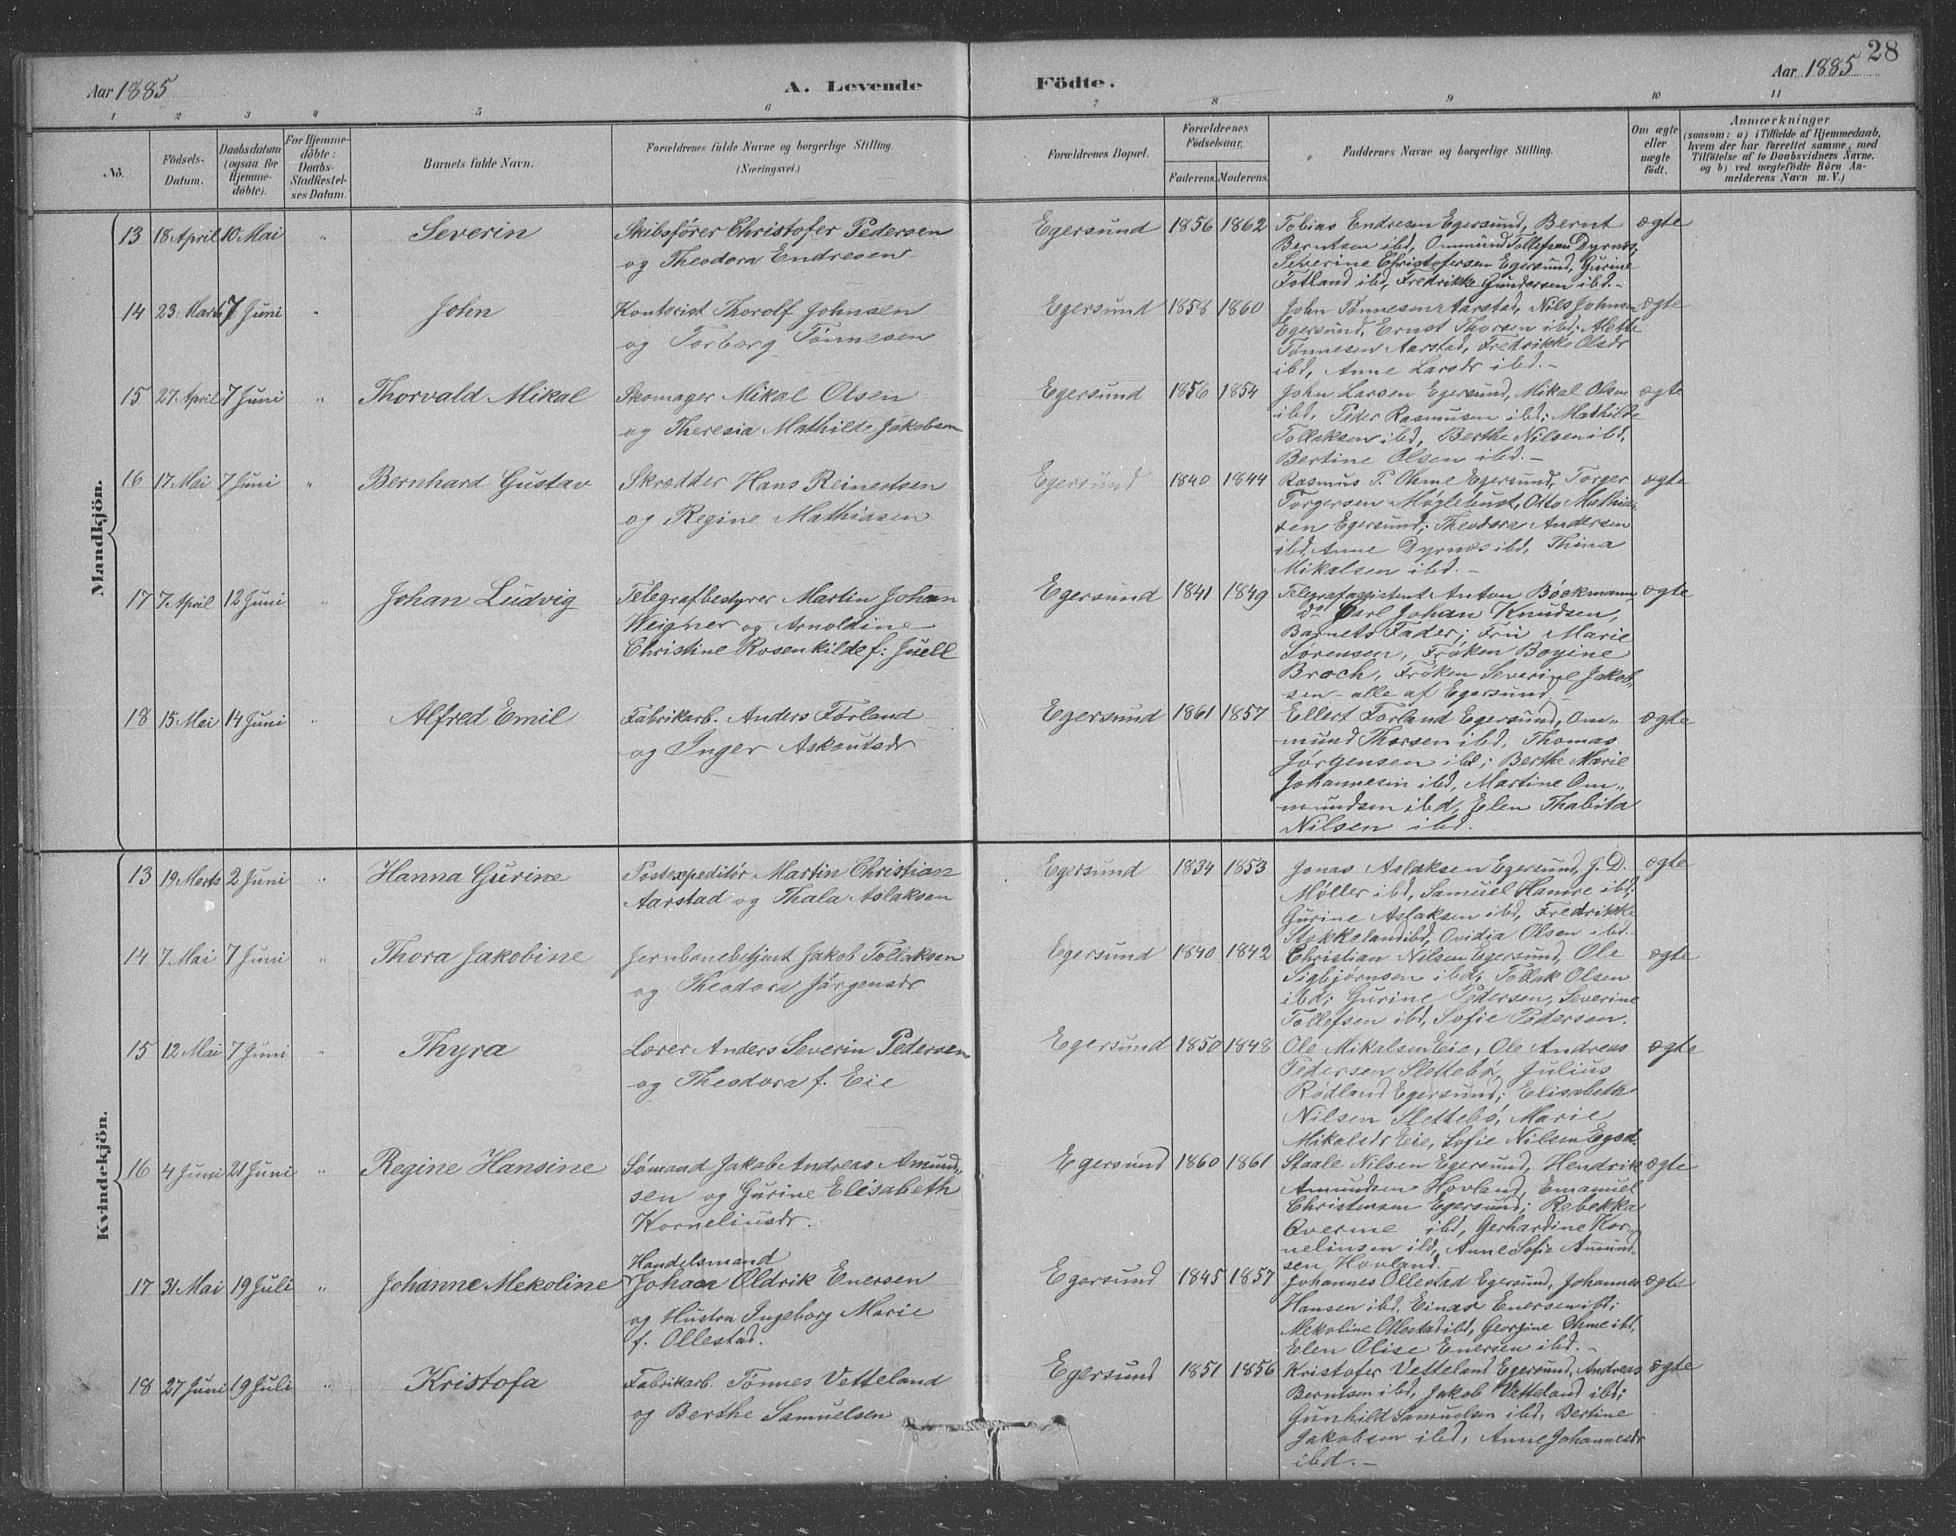 28
Aar 1885
A. Levende Födte.
Aar 1885
1 2 3 4 5 6 7 8 9 10 11
No.
Födsels-Datum.
Daabsdatum (ogsaa for Hjemmedöbte).
For Hjemmedöbte: Daabs-Stadfæstelses Datum.
Barnets fulde Navn.
Forældrenes fulde Navne og borgerlige Stilling. (Næringsvei.)
Forældrenes Bopæl.
Forældrenes Födselsaar.
Faderens. Moderens.
Faddernes Navne og borgerlige Stilling.
Om ægte eller uægte födt.
Anmærkninger
(saasom: a) i Tilfælde af Hjemmedaab,
hvem der har forrettet samme, med
Tilföielse af to Daabsvidners Navne,
og b) ved uægtefödte Börn An-
melderens Navn m. V.)
Mandkjön.
13 18 April 10 Mai " Severin
Skibsfører Christofer Pedersen
og Theodora Endresen
Egersund 1856 1862
Tobias Endresen Egersund, Bernt
Berntsen ibd, Ommund Tollefsen Dyrnes,
Severine Christofersen Egersund, Gurine
Fotland ibd, Fredrikke Gundersen ibd.-
ægte
14 23 Marts 7 Juni " John
Kontorist Thorolf Johnsen
og Torborg Tønnesen
Egersund 1858 1860
John Tønnesen Aarstad, Nils Johnsen
Egersund, Ernst Thorsen ibd; Alette
Tønnesen Aarstad, Fredrikke Olsdr
ibd, Anne Larsdr ibd.-
ægte
15 27 April 7 Juni " Thorvald Mikal
Skomager Mikal Olsen
og Theresia Mathilde Jakobsen
Egersund 1856 1854
John Larsen Egersund, Mikal Olsen
ibd, Peder Rasmusen ibd; Mathilde
Tollaksen ibd, Berthe Nilsen ibd,
Bertine Olsen ibd.-
ægte
16 17 Mai 7 Juni " Bernhard Gustav
Skrædder Hans Reinertsen
og Regine Mathiasen
Egersund 1840 1844
Rasmus P. Ohme Egersund, Torger
Torgersen Møgletust, Otto Mathia-
sen Egersund; Theodore Andersen
ibd, Anne Dyrnes ibd, Thina
Mikalsen ibd.-
ægte
17 7 April 12 Juni " Johan Ludvig
Telegrafbestyrer Martin Johan
Weigner og Arnoldine
Christine Rosenkilde f: Juell
Egersund 1841 1849
Telegrafassistent Anton Bøckmann,
Do Carl Johan Knudsen,
Barnets Fader; Fru Marie
Sørensen, Frøken Boyine
Broch, Frøken Severine Jakob-
sen - alle af Egersund.
ægte
18 15 Mai 14 Juni " Alfred Emil
Fabrikarb. Anders Førland
og Inger Askoutsdr
Egersund 1861 1857
Ellert Førland Egersund, Om-
mund Thorsen ibd, Thomas
Jørgensen ibd; Berthe Marie
Johannesen ibd, Martine Om-
mundsen ibd, Elen Thabita
Nilsen ibd.
ægte
Kvindekjön.
13 19 Marts 2 Juni " Hanna Gurine
Postexpeditør Martin Christian
Aarstad og Thala Aslaksen
Egersund 1834 1853
Jonas Aslaksen Egersund, J. D.
Møller ibd, Samuel Hamre ibd:
Gurine Aslaksen ibd, Fredrikke
Stokkeland ibd, Ovidia Olsen ibd.
ægte
14 7 Mai 7 Juni " Thora Jakobine
Jernbanebetjent Jakob Tollaksen
og Theodora Jørgensdr
Egersund 1840 1842
Christian Nilsen Egersund, Ole
Sigbjørnsen ibd, Tollak Olsen
ibd; Gurine Pedersen, Severine
Tollefsen ibd, Sofie Pedersen.
ægte
15 12 Mai 7 Juni " Thyra
Lærer Anders Severin Pedersen
og Theodora f. Eie
Egersund 1850 1848
Ole Mikalsen Eie, Ole Andreas
Pedersen Slettebø, Julius
Rødland Egersund; Elisabeth
Nilsen Slettebø, Marie
Mikalsdr Eie, Sofie Nilsen Egsd.
ægte
16 4 Juni 21 Juni " Regine Hansine
Sømand Jakob Andreas Amund-
sen og Gurine Elisabeth
Korneliusdr.
Egersund 1860 1861
Staale Nilsen Egersund, Hendrik
Amundsen Hovland, Emanuel
Christensen Egersund; Rebekka
Qverme ibd, Gerhardine Kor-
neliusen ibd, Anne Sofie Amund-
sen Hovland.
ægte
17 31 Mai 19 Juli " Johanne Mekoline
Handelsmand
Johan Oldrik Enersen
og Hustru Ingeborg Marie
f. Ollestad.
Egersund 1845 1857
Johannes Ollestad Egersund, Johannes
Hansen ibd, Einar Enersen ibd;
Mekoline Ollestad ibd, Georgine Ohme ibd,
Elen Olise Enersen ibd.-
ægte
18 27 Juni 19 Juli " Kristofa
Fabrikarb. Tønnes Vetteland
og Berthe Samuelsen
Egersund 1851 1856
Kristofer Vetteland Egersund, Andreas
Berntsen ibd, Jakob Vetteland ibd;
Gunhild Samuelsen ibd, Bertine
Jakobsen ibd, Anne Johannesdr
ibd.-
ægte